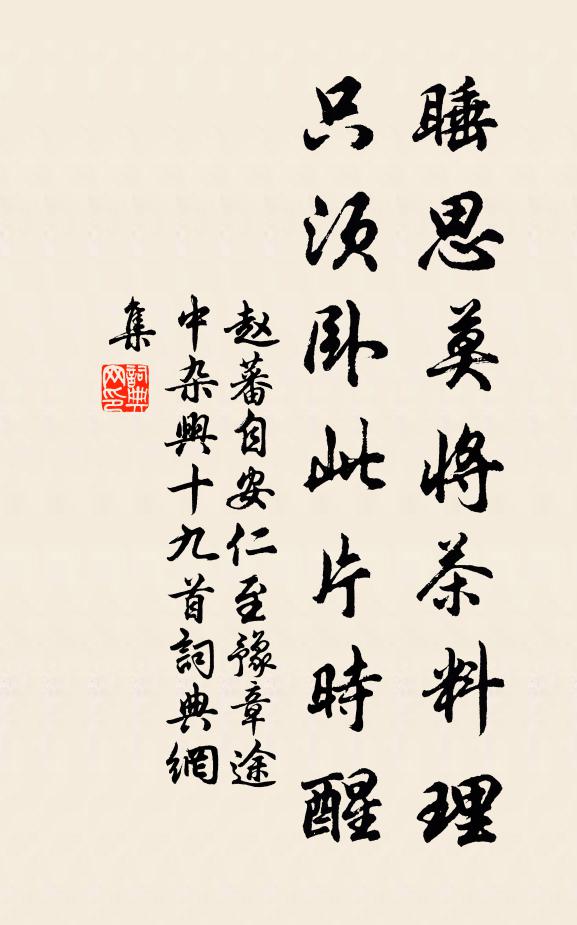 睡思莫将茶料理
只须卧此片時醒
赵蕃自安仁至豫章途
中杂興十九首詞典網
集
詞典网印